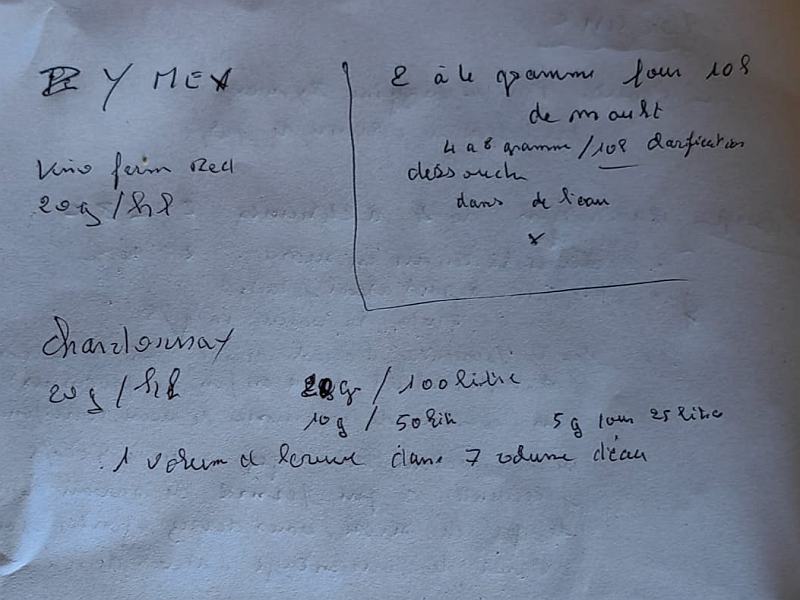 BYMEX
Vino ferm Red
20g/hl
2 à 4 gramme pour 10l
de moult
4 a 8 gramme/10l clarification
dissoudre
dans de l'eau
x
Chardonnay
20g/hl
20gr / 100 litre
10g / 50 litre
5g pour 25 litre
1 volume de levure dans 7 volume d'eau